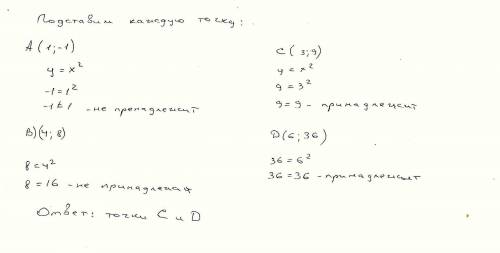 Подставим каждую точку:
A (1;-1)
y = x²
-1 = 1²
-1 ≠ 1 - не препадлежит
B) (4; 8)
8 = 4²
8 = 16 - не принадлежит
C ( 3; 9)
y = x²
9 = 3²
9 = 9 - принадлежит
D (6; 36)
36 = 6²
36 = 36 - принадлежит
Ответ: точки C и D